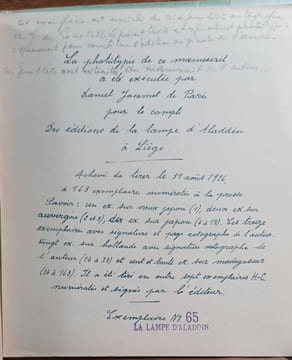 cet exemplaire est enrichi de
La phototypie de ce manuscrit
a été exécutée par
Daniel Jacomet de Paris
pour le compte
Des éditions de la lampe d'Aladdin
à Liége.
Achevé de tirer le 31 août 1926,
à 163 exemplaires numérotés à la presse
Savoir: un ex. sur vieux japon (1), deux ex. sur
auvergne (2 et 3), dix ex. sur japon (4 à 13). Les treize
exemplaires avec signature et page autographe de l'auteur.
vingt ex. sur hollande avec signature autographe de
l'auteur (14 à 33) et cent et trente ex. sur madagascar
(34 à 163). Il a été tiré en outre sept exemplaires H-C.
numérotés et signés par l'éditeur.
Exemplaire No 65
LA LAMPE D'ALADDIN